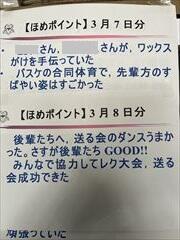 【ほめポイント】３月７日分
・ さん, さんが, ワックス
がけを手伝っていた
・ バスケの合同体育で, 先輩方のす
ばやい姿はすごかった
【ほめポイント】３月８日分
・ 後輩たちへ, 送る会のダンスうまか
った。さすが後輩たち GOOD!!
・ みんなで協力してレク大会, 送る
会成功できた
頑張っていた